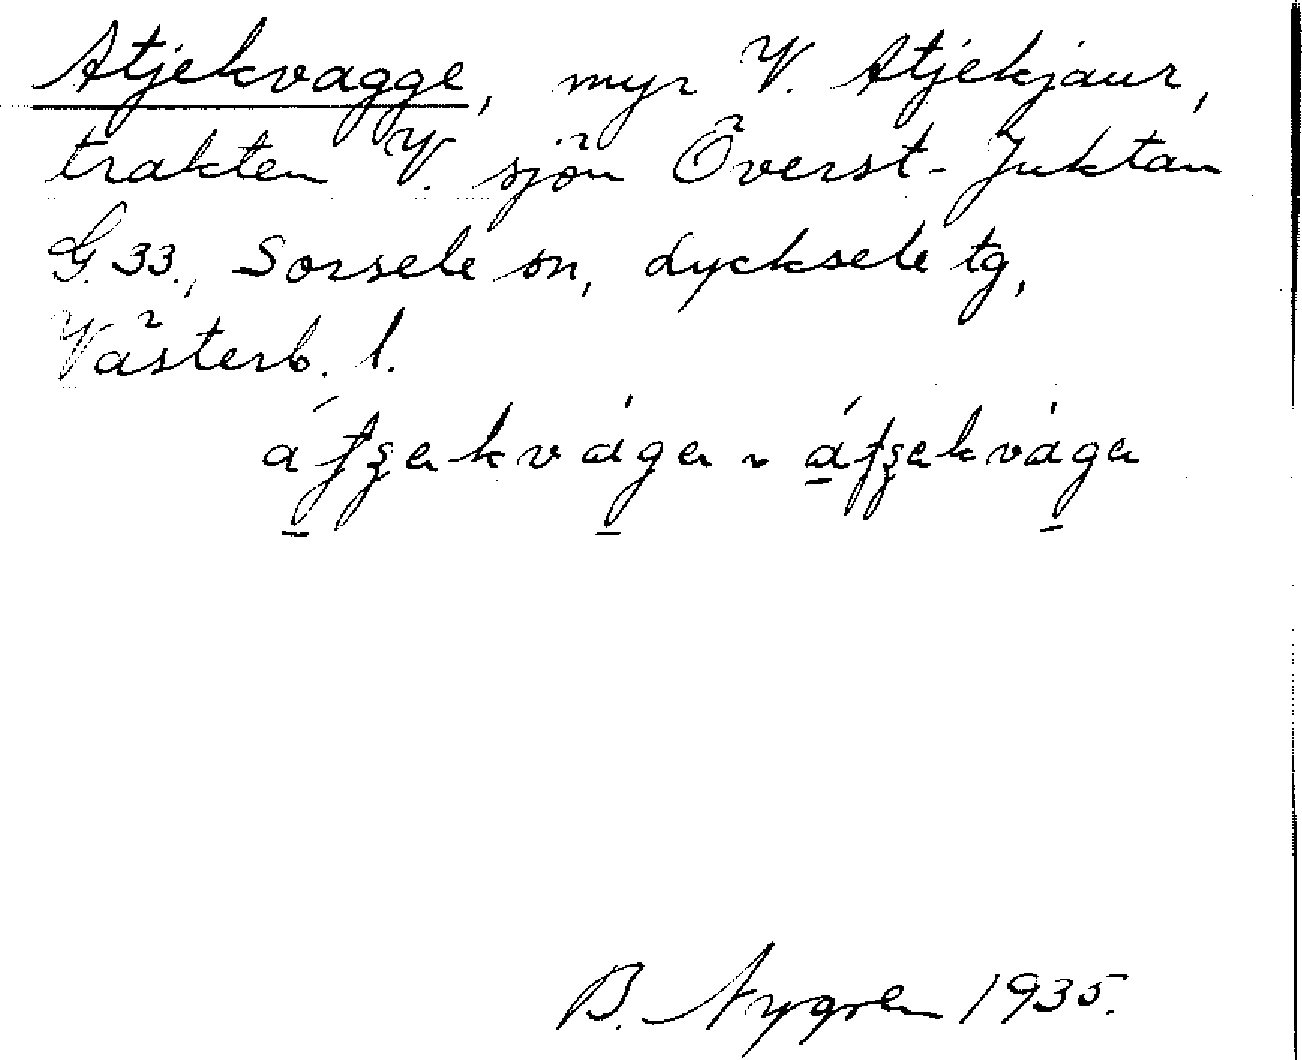 Atjekvagge, myr V. Atjekjaur,
trakten V. sjön Överst-Juktan
G.33., Sorsele sn, Lycksele tg,
Västerb. l.
B. Nygren 1935.